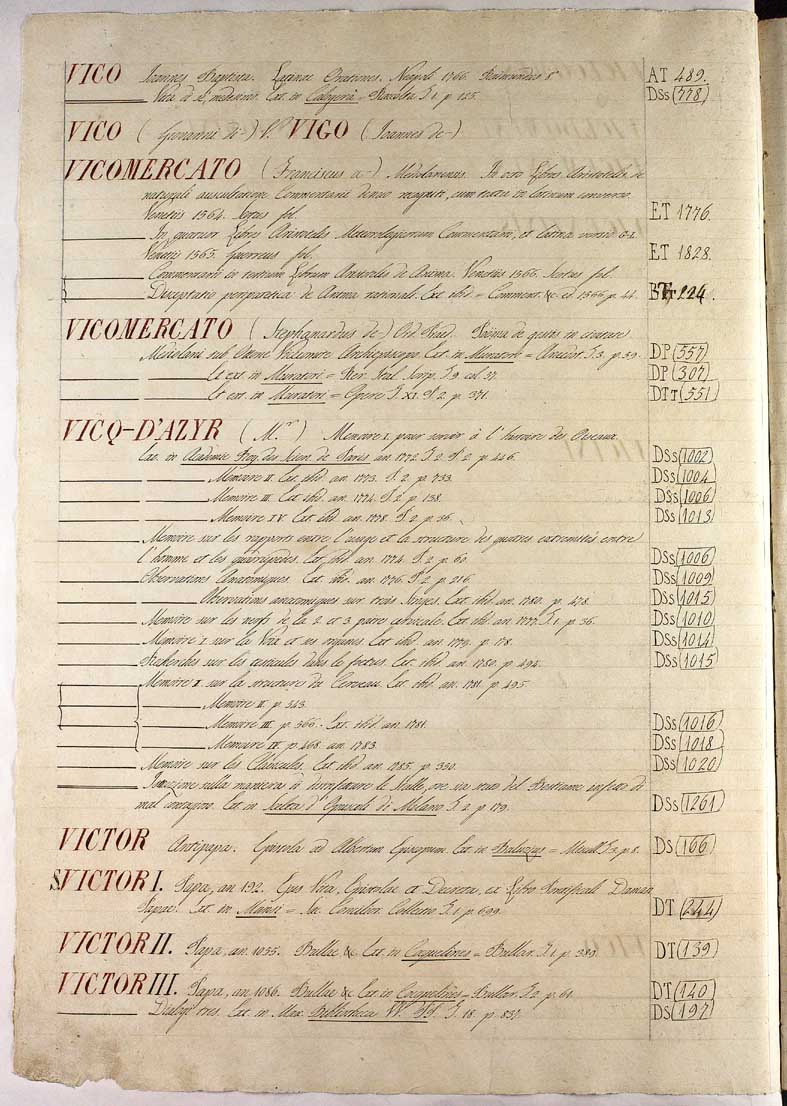 VICO Joannes Baptista. Latinae Orationes. Napoli 1766. Raimondus 8° AT 489.
Vita di se medesimo. Ext. in Calogerà = Raccolta T. 1. p. 125. DSs 778
VICO (Giovanni de-) V. VIGO (Joannes de-)
VICOMERCATO (Franciscus a-) Mediolanensis. In octo Libros Aristotelis de
naturali auscultatione Commentarii denuo recogniti, cum textus in latinum conversio
Venetiis 1564. Scotus fol. ET 1776.
In quatuor Libros Aristotelis Meteorologicorum Commentarii, et latina versio
Venetiis 1565. Guerreus fol. ET 1828.
Commentarii in tertium Librum Aristotelis de Anima. Venetiis 1566. Scotus fol.
Disceptatio peripatetica de Anima rationali. Ext. ibid = Comment. &c. p. 44. 224.
VICOMERCATO (Stephanardus de-) Ord. Praed. Poema de gestis in civitate
Mediolani sub Othone Vicecomite Archiepiscopo Ext. in Muratori = Anecdot. T. 3. p. 59. DP 557
Et ext. in Muratori = Rer. Ital. Scrip. T. 9. col. 57. DP 307
Et ext. in Muratori = Opere T. XI. P. 2. p. 371. DTT 551
VICQ-D'AZYR (M.r) Memoire I. pour servir à l'histoire des Oiseaux
Ext. in Academie Roy. des Scien. de Paris an. 1772. T. 2. P. 2. p. 446. DSs 1002
Memoire II. Ext. ibid. an. 1773. P. 2. p. 733. DSs 1004
Memoire III. Ext. ibid. an. 1774. P. 2. p. 138. DSs 1006
Memoire IV. Ext. ibid. an. 1778. P. 2. p. 36. DSs 1013
Memoire sur les rapports entre l'usage et la structure des quatres extremités entre
l'homme et les quadrupedes. Ext. ibid. an. 1774. P. 2. p. 60. DSs 1006
Observations Anatomiques. Ext. ibid. an. 1776. P. 2. p. 216. DSs 1009
Observations anatomiques sur trois Singes. Ext. ibid. an. 1780. p. 478. DSs 1015
Memoire sur les nerfs de la 2. et 3. paire cervicale. Ext. ibid. an. 1777. T. 1. p. 36. DSs 1010
Memoire I. sur la Voix et ses organes Ext. ibid. an. 1779. p. 178. DSs 1014
Recherches sur les testicules dans le foetus. Ext. ibid. an. 1780. p. 494. DSs 1015
Memoire I. sur la structure du Cerveau. Ext. ibid. an. 1781. p. 495.
Memoire II. p. 543.
Memoire III. p. 566. Ext. ibid. an. 1781. DSs 1016
Memoire IV. p. 468. an. 1783. DSs 1018
Memoire sur les Clavicules. Ext. ibid. an. 1785. p. 350. DSs 1020
Istruzione sulla maniera di disinfettare le Stalle, ove sia stato del Bestiame infetto di
mal contagioso. Ext. in Scelta d'Opuscoli di Milano T. 2. p. 179. DSs 1261
VICTOR Antipapa. Epistola ad Albertum Episcopum Ext. in Baluzius = Miscell. T. 2. p. 8. DS 166
S. VICTOR I. Papa, an. 192. Ejus Vita, Epistolae et Decreta, ex Libro Pontificali Damasi
Papae. Ext. in Mansi = Sa. Concilior. Collectio T. 1. p. 699. DT 244
VICTOR II. Papa, an. 1055. Bullae &c. Ext. in Coquelines = Bullar. T. 1. p. 389. DT 139
VICTOR III. Papa, an. 1086. Bullae &c. Ext. in Coquelines = Bullar. T. 2. p. 61. DT 140
Dialogi tres. Ext. in Max. Bibliotheca VV. PP. T. 18. p. 853. DS 197